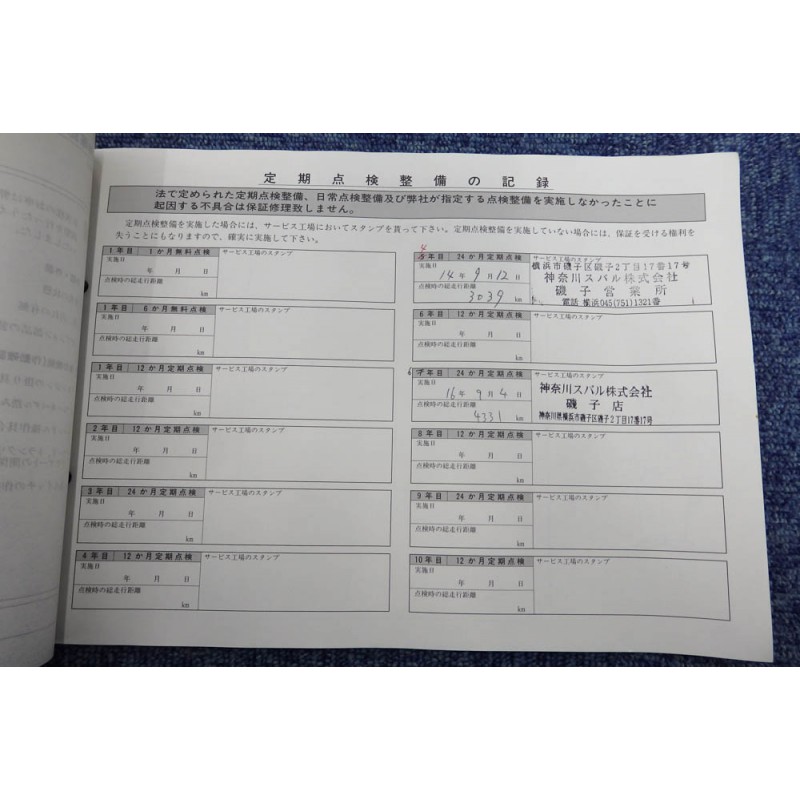 定期点検整備の記録
法で定められた定期点検整備、日常点検整備及び弊社が指定する点検整備を実施しなかったことに
起因する不具合は保証修理致しません。
定期点検整備を実施した場合には、サービス工場においてスタンプを貰って下さい。定期点検整備を実施していない場合には、保証を受ける権利を
失うことにもなりますので、確実に実施して下さい。
1年目 1か月無料点検 サービス工場のスタンプ
実施日
年 月 日
点検時の総走行距離
km
1年目 6か月無料点検 サービス工場のスタンプ
実施日
年 月 日
点検時の総走行距離
km
1年目 12か月定期点検 サービス工場のスタンプ
実施日
年 月 日
点検時の総走行距離
km
2年目 12か月定期点検 サービス工場のスタンプ
実施日
年 月 日
点検時の総走行距離
km
3年目 24か月定期点検 サービス工場のスタンプ
実施日
年 月 日
点検時の総走行距離
km
4年目 12か月定期点検 サービス工場のスタンプ
実施日
年 月 日
点検時の総走行距離
km
4
5年目 24か月定期点検 サービス工場のスタンプ
実施日
14年9月12日
点検時の総走行距離
3039 km
横浜市磯子区磯子2丁目17番17号
神奈川スバル株式会社
磯子営業所
電話 横浜045(751)1321番
6年目 12か月定期点検 サービス工場のスタンプ
実施日
年 月 日
点検時の総走行距離
km
6
7年目 24か月定期点検 サービス工場のスタンプ
実施日
16年9月4日
点検時の総走行距離
4331 km
神奈川スバル株式会社
磯子店
神奈川県横浜市磯子区磯子2丁目17番17号
8年目 12か月定期点検 サービス工場のスタンプ
実施日
年 月 日
点検時の総走行距離
km
9年目 24か月定期点検 サービス工場のスタンプ
実施日
年 月 日
点検時の総走行距離
km
10年目 12か月定期点検 サービス工場のスタンプ
実施日
年 月 日
点検時の総走行距離
km